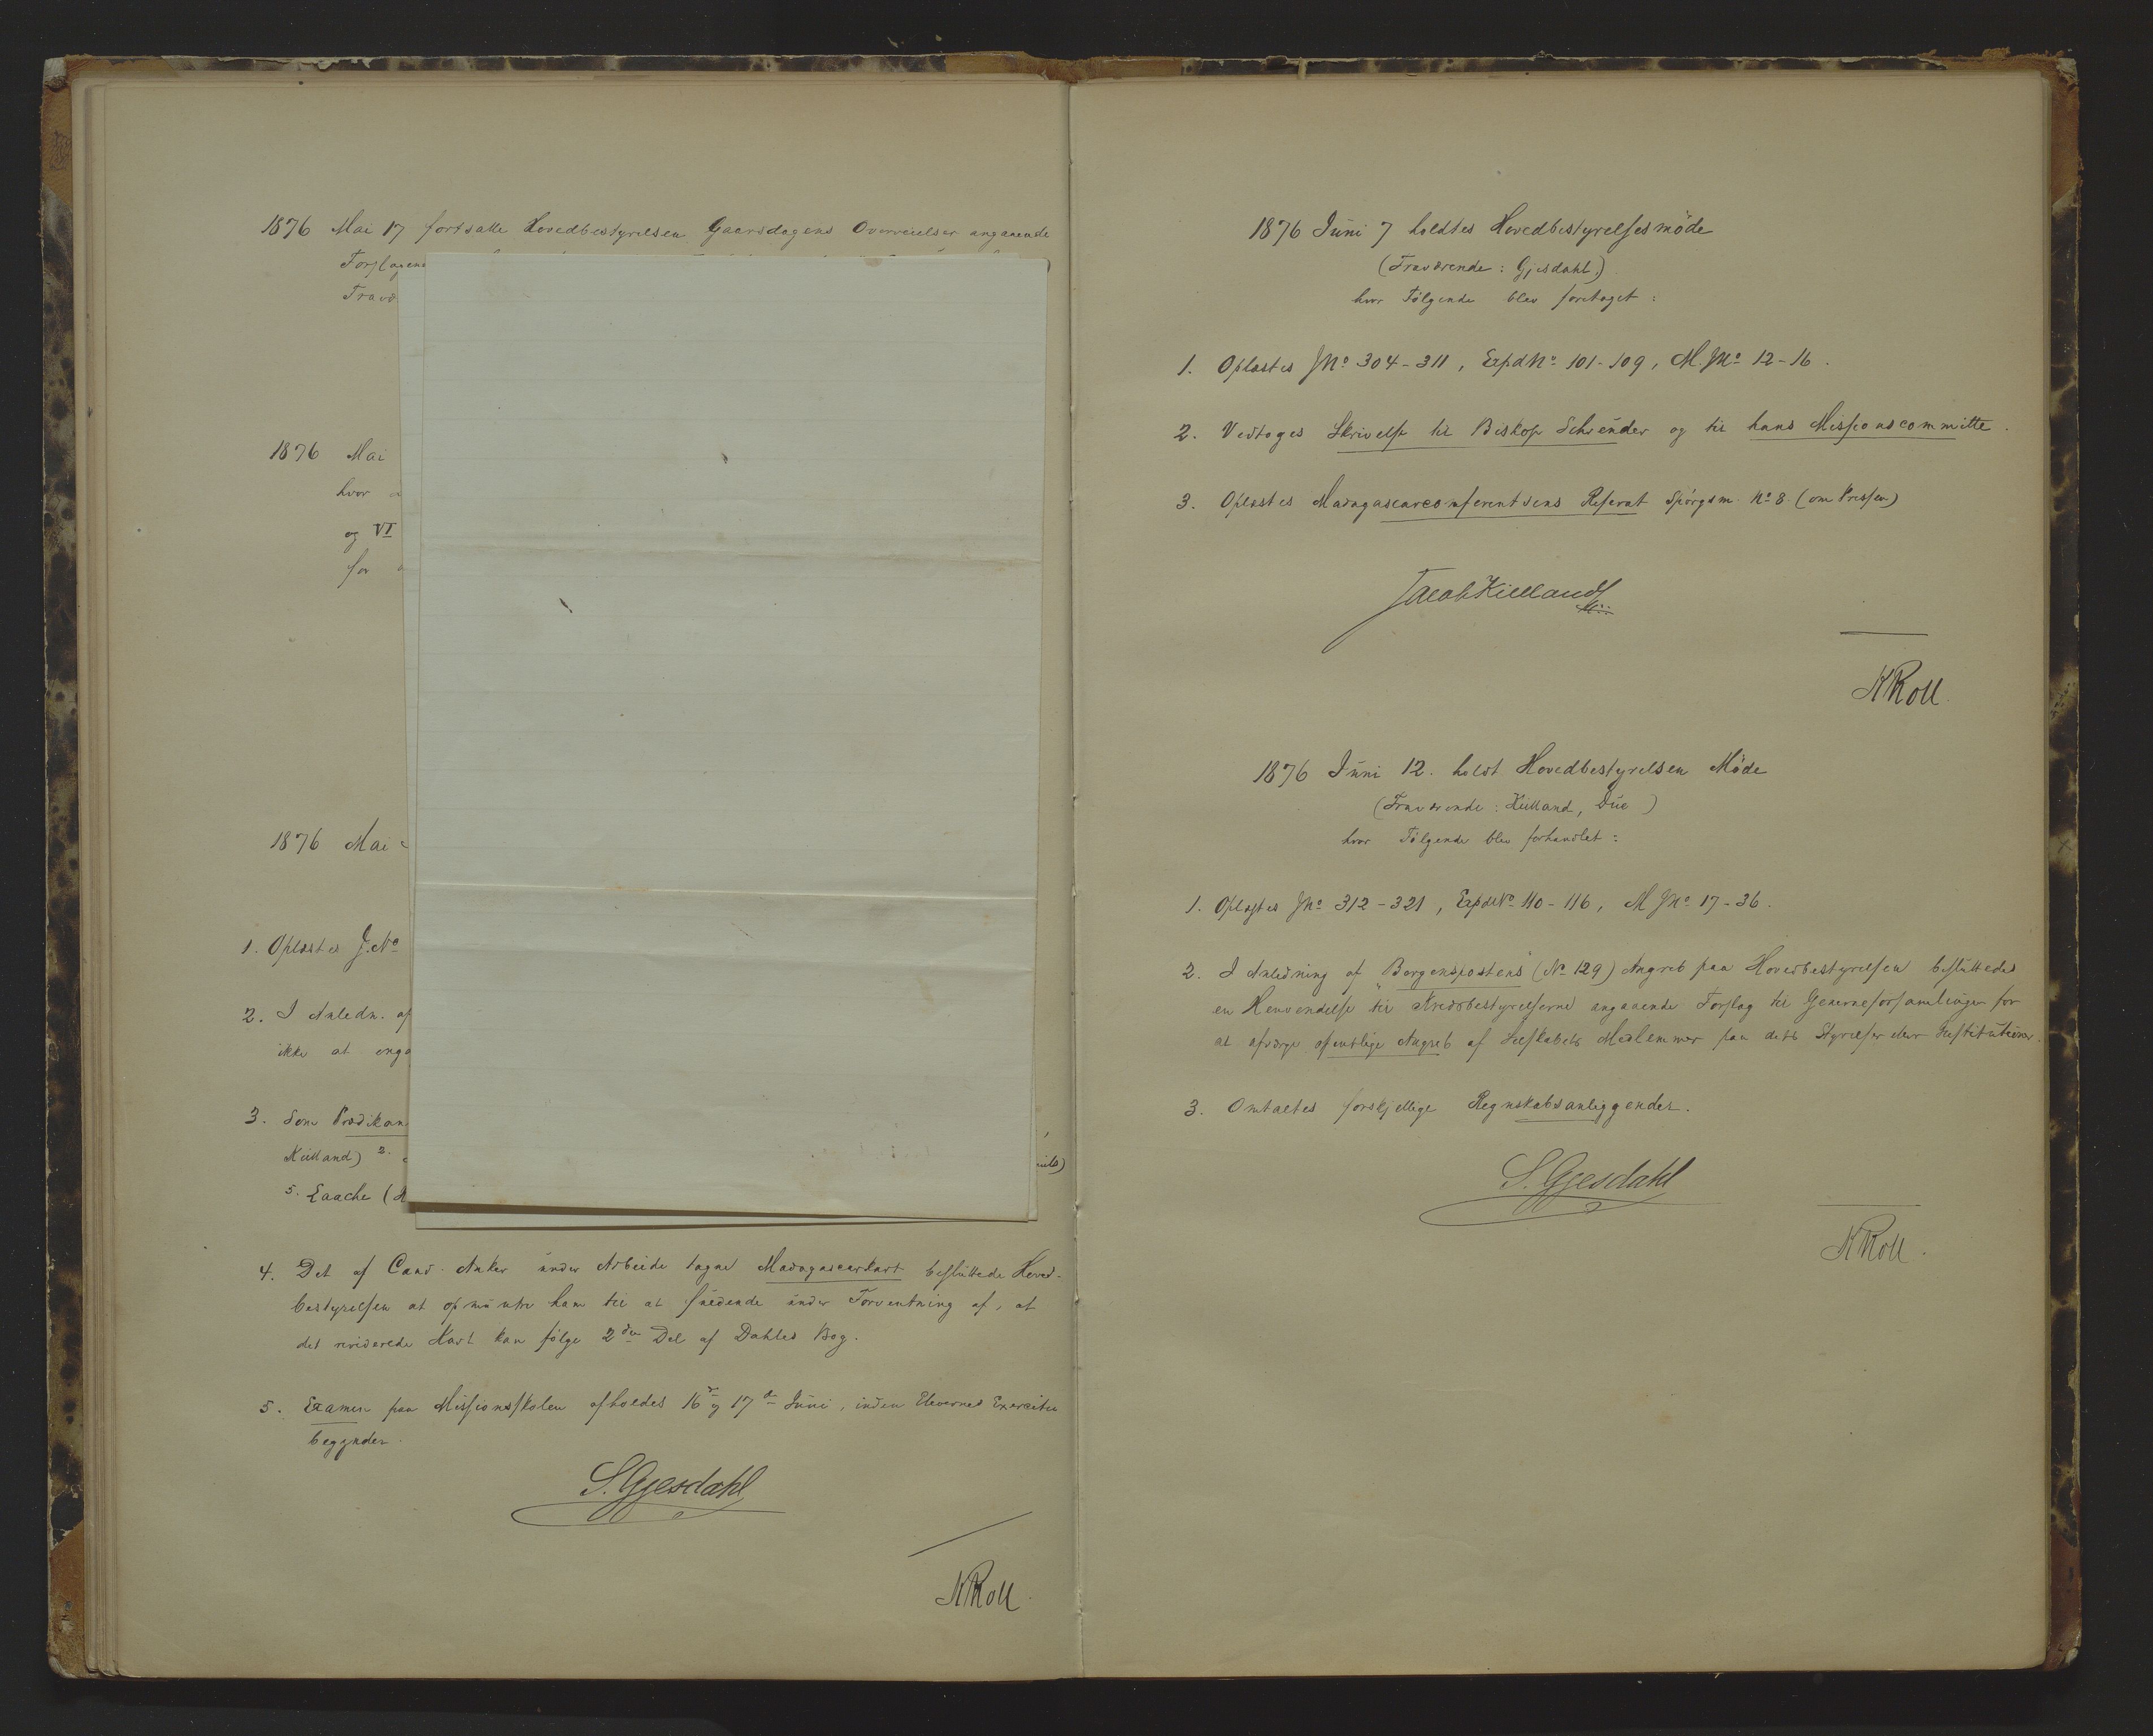 1876 Mai 17 fortsatte Hovedbestyrelsen Gaarsdagens Overveielser angaaende
Forslagene
Fravæ
1876 Mai
hvor
og VI
for
1876 Mai
1. Oplæstes J.No
2. I Anledn. af
ikke at enga
3. Som Prædikan
Kielland) 2.
5. Laache (
4. Det af Cand. Anker under Arbeide tagne Madagascarkart besluttede Hoved-
bestyrelsen at opmuntre ham til at fuldende under Forventning af, at
det reviderede Kart kan følge 2den Del af Dahles Bog.
5. Examen paa Missionsskolen afholdes 16d og 17de Juni, inden Elevernes Exercitie
begynder.
S. Gjesdahl
KRoll.
1876 Juni 7 holdtes Hovedbestyrelsesmöde
(Fraværende: Gjesdahl)
hvor Følgende blev foretaget:
1. Oplæstes JNo 304-311, ExpdNo 101-109, M.JNo 12-16.
2. Vedtoges Skrivelse til Biskop Schreuder og til hans Missionscommitte.
3. Oplæstes Madagascarconferentsens Referat Spörgsm. No 8 (om Pressen)
Jacob Kielland
KRoll.
1876 Juni 12. holdt Hovedbestyrelsen Möde
(Fraværende: Kielland, Due)
hvor Følgende blev forhandlet:
1. Oplæstes JNo 312-321, ExpdNo 110-116, M JNo 17-36.
2. I Anledning af "Bergenspostens" (No 129) Angreb paa Hovedbestyrelsen besluttedes
en Henvendelse til Kredsbestyrelserne angaaende Forslag til Generalforsamlingen for
at afværge offentlige Angreb af Selskabets Medlemmer paa dets Styrelser eller Institutioner.
3. Omtaltes forskjellige Regnskabsanliggender.
S. Gjesdahl
KRoll.